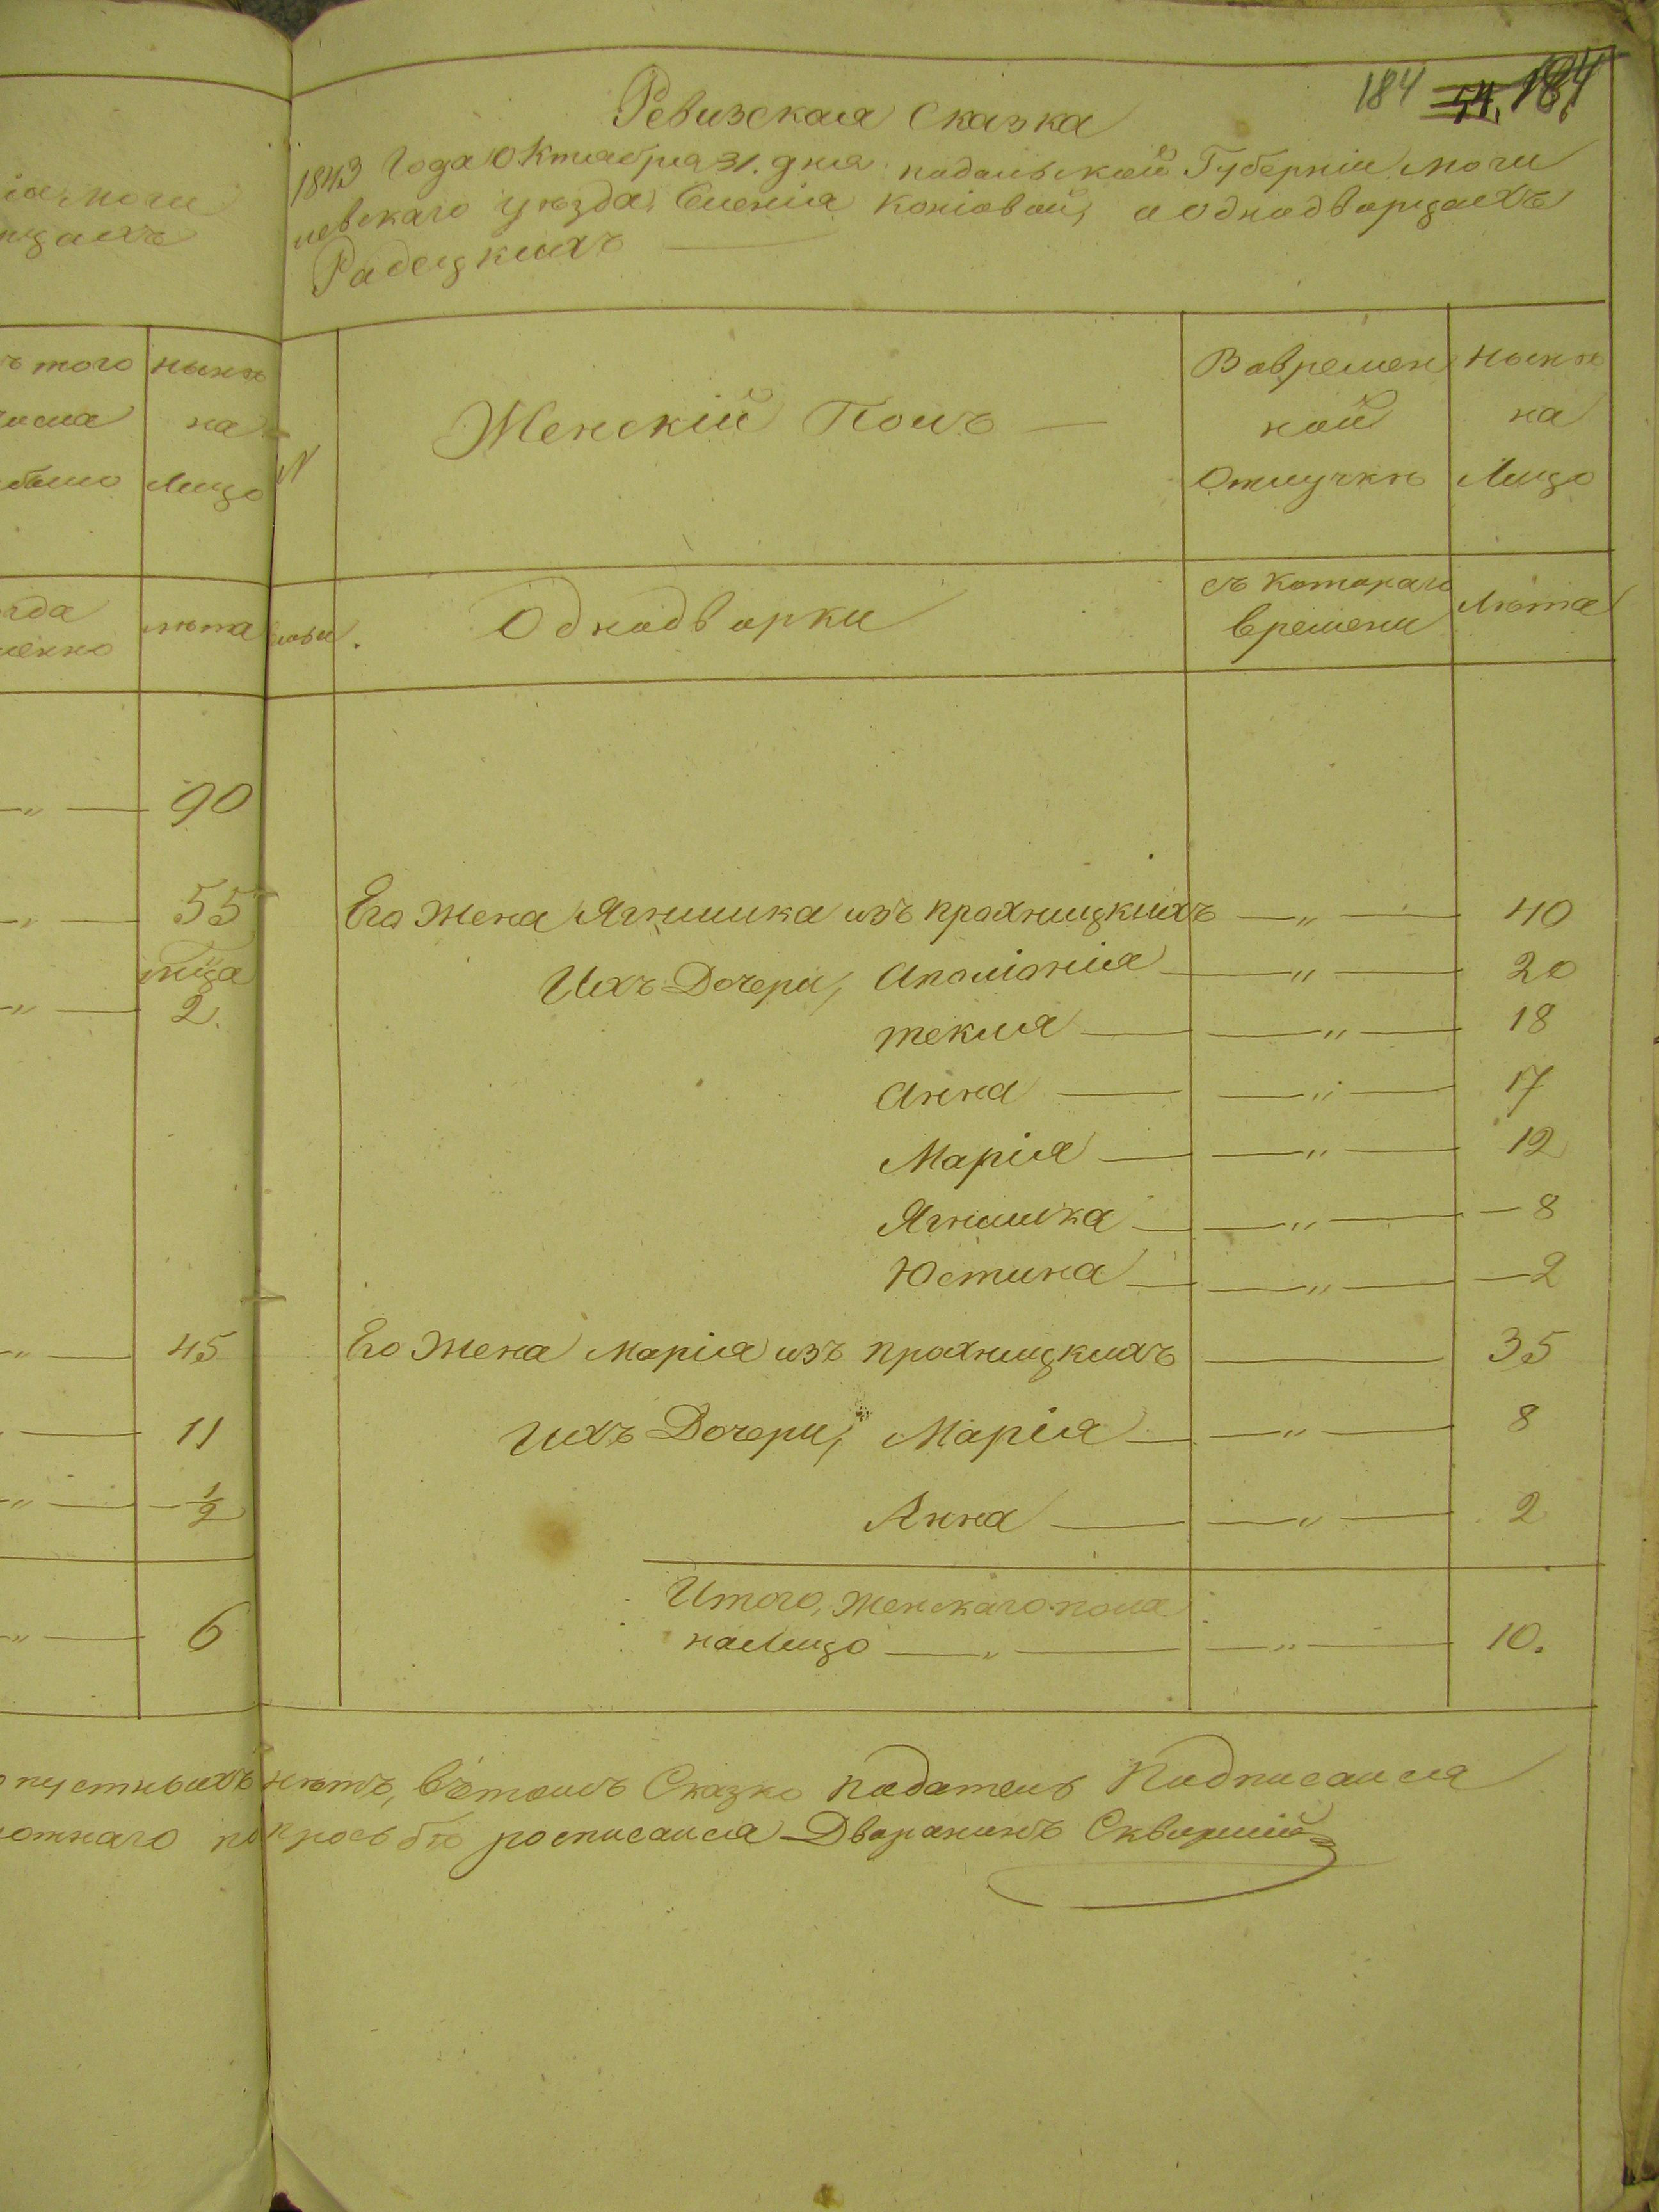 184 54. 184
Ревизская Сказка
1843 Года Октября 31. дня подольской Губерніи Моги
левскаго уѣзда, Селенія Коніовой, а однодворцахъ
Радецкихъ
ія Моги
рцахъ
ъ того
числа
было
нынѣ
на
Лицо
N
Женскій Полъ
Вовремен
ной
Отлучкѣ
Нынѣ
на
Лицо
лѣта
Однодворки
съ котораго
времени
Лѣта
90
55
мца
2.
Его Жена Ягнишка изъ прохницкихъ — „ — 40
Ихъ Дочери, Аполіонія — „ — 20
текля — „ — 18
Анна — „ — 17
Марія — „ — 12
Ягнишка — „ — 8
Юстина — „ — 2
45 Его Жена Марія изъ прохницкихъ — 35
11 Ихъ Дочери, Марія — „ — 8
½ Анна — „ — 2
Итого, женскаго пола
6 на Лицо — „ — 10.
пустныхъ нѣтъ, вътомъ Сказко податель Подписался
просьбѣ росписался Дворянинъ